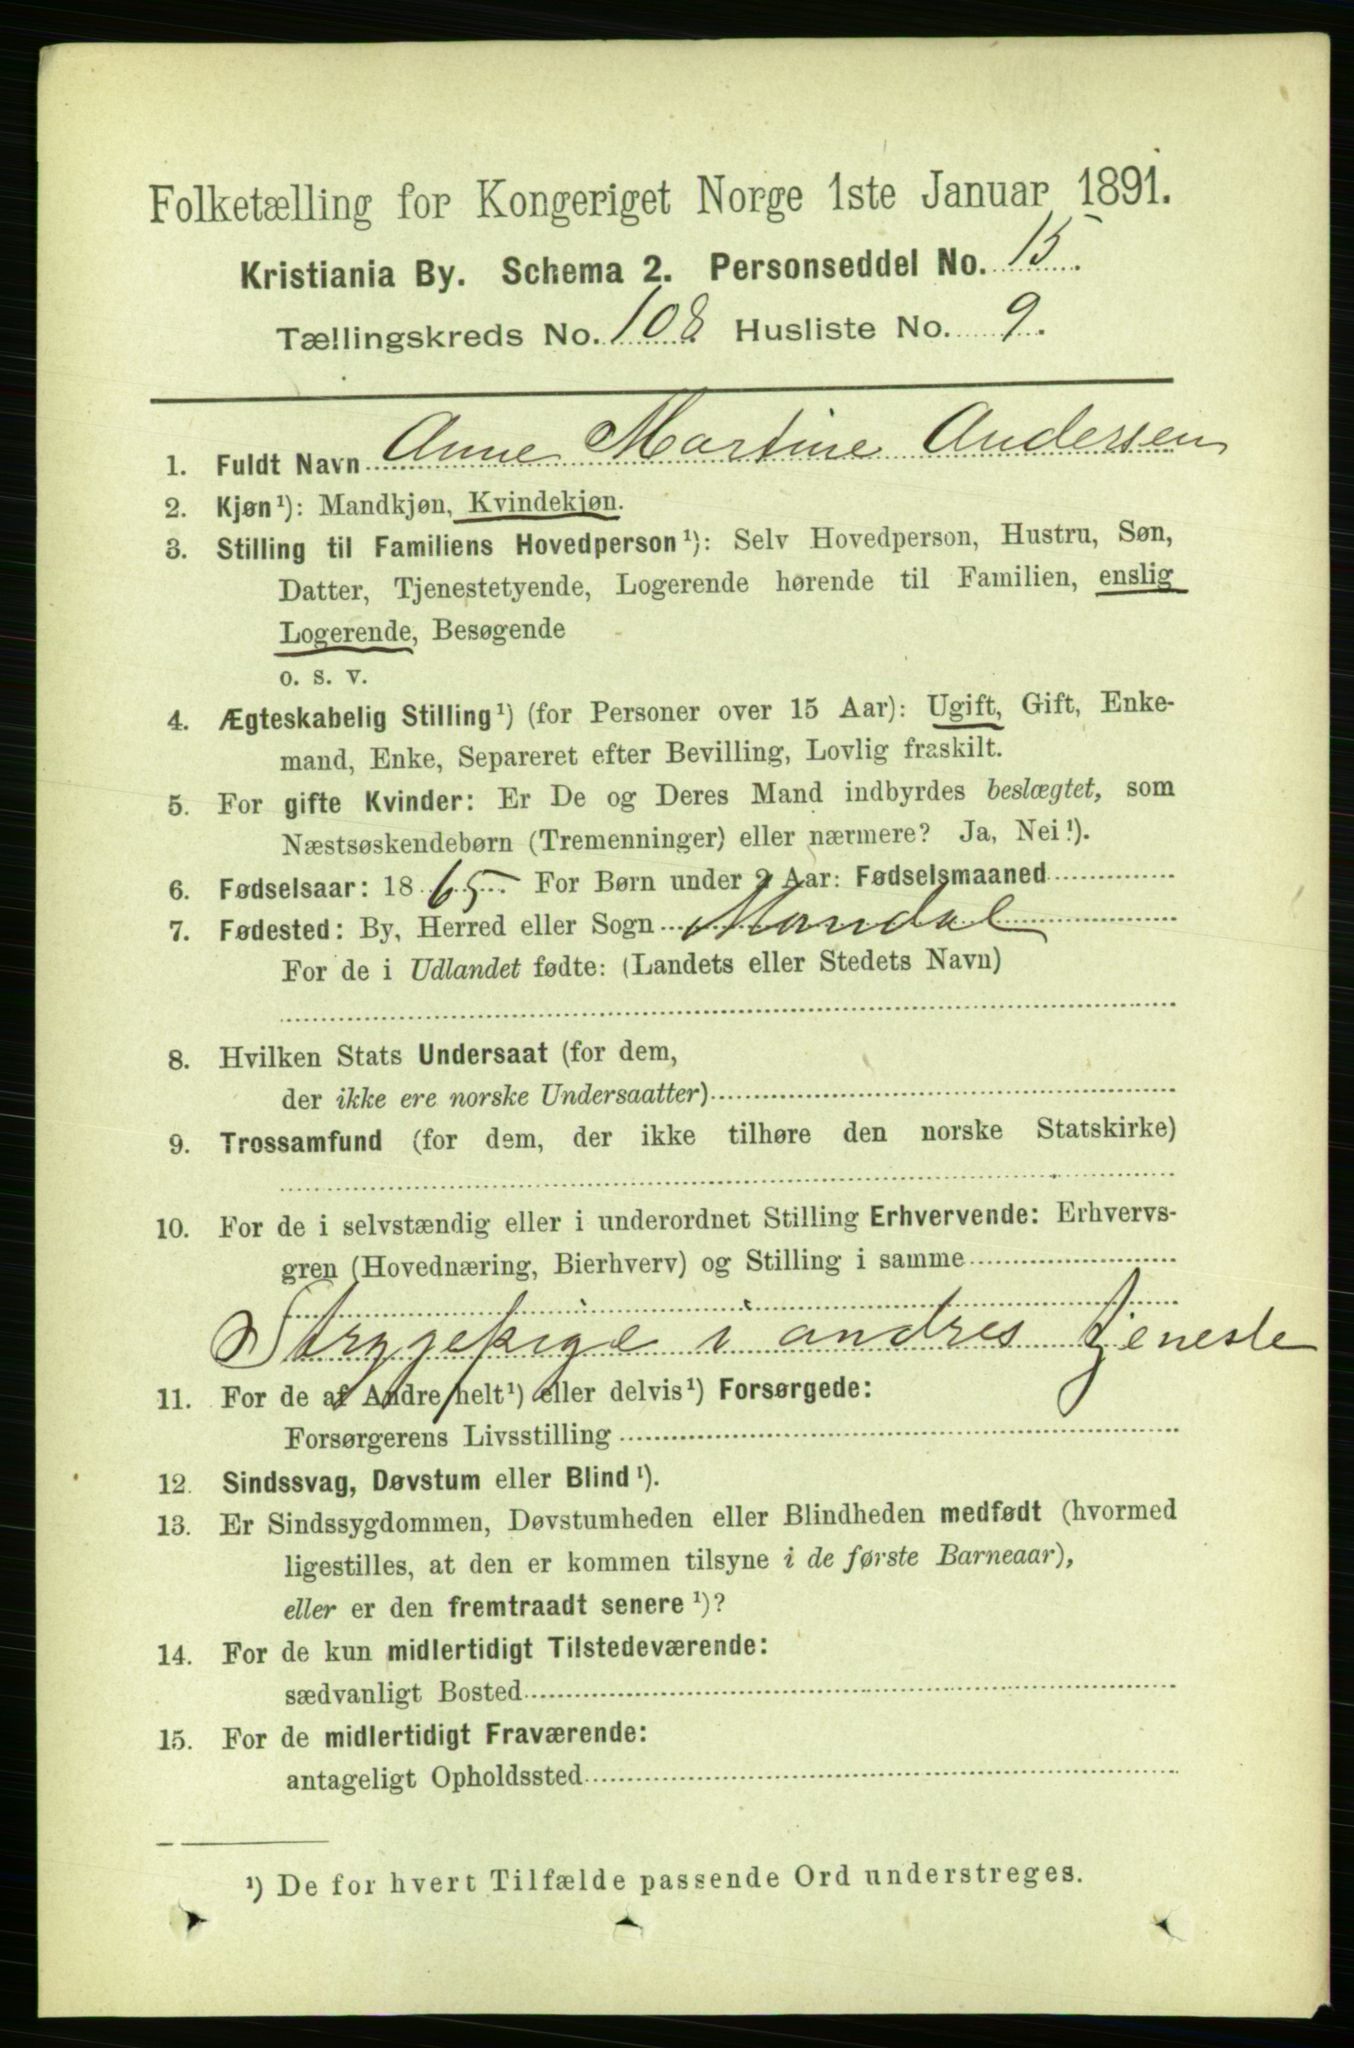 Folketælling for Kongeriget Norge 1ste Januar 1891.
Kristiania By. Schema 2. Personseddel No. 15.
Tællingskreds No. 108 Husliste No. 9.
1. Fuldt Navn Anne Martine Andersen
2. Kjøn¹): Mandkjøn, Kvindekjøn.
3. Stilling til Familiens Hovedperson¹): Selv Hovedperson, Hustru, Søn,
Datter, Tjenestetyende, Logerende hørende til Familien, enslig
Logerende, Besøgende
o. s. v.
4. Ægteskabelig Stilling¹) (for Personer over 15 Aar): Ugift, Gift, Enke-
mand, Enke, Separeret efter Bevilling, Lovlig fraskilt.
5. For gifte Kvinder: Er De og Deres Mand indbyrdes beslægtet, som
Næstsøskendebørn (Tremenninger) eller nærmere? Ja, Nei¹).
6. Fødselsaar: 1865. For Børn under 2 Aar: Fødselsmaaned
7. Fødested: By, Herred eller Sogn Mandal
For de i Udlandet fødte: (Landets eller Stedets Navn)
8. Hvilken Stats Undersaat (for dem,
der ikke ere norske Undersaatter)
9. Trossamfund (for dem, der ikke tilhøre den norske Statskirke)
10. For de i selvstændig eller i underordnet Stilling Erhvervende: Erhvervs-
gren (Hovednæring, Bierhverv) og Stilling i samme
Strygepige i andres tjeneste
11. For de af Andre helt¹) eller delvis¹) Forsørgede:
Forsørgerens Livsstilling
12. Sindssvag, Døvstum eller Blind¹).
13. Er Sindssygdommen, Døvstumheden eller Blindheden medfødt (hvormed
ligestilles, at den er kommen tilsyne i de første Barneaar),
eller er den fremtraadt senere¹)?
14. For de kun midlertidigt Tilstedeværende:
sædvanligt Bosted
15. For de midlertidigt Fraværende:
antageligt Opholdssted
¹) De for hvert Tilfælde passende Ord understreges.